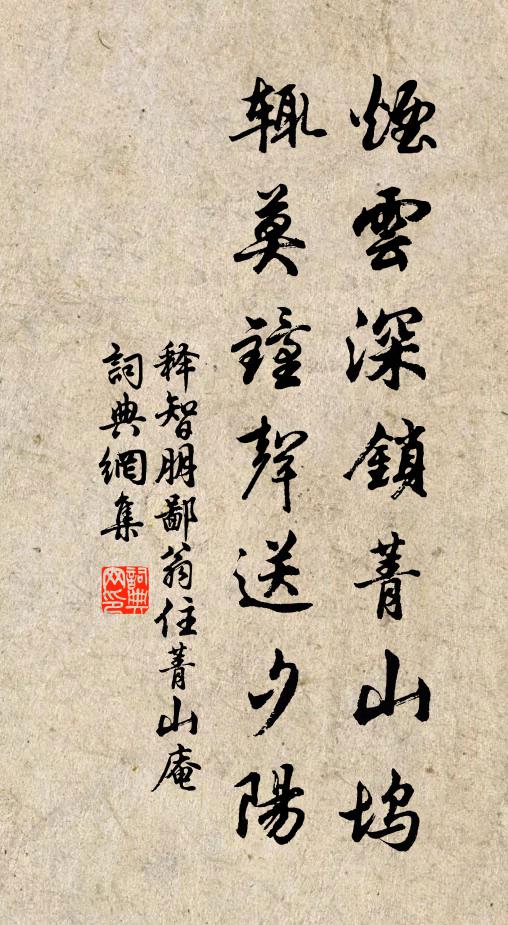 煙雲深鎖菁山塢
輒莫鐘聲送夕陽
释智朋鄙翁住菁山庵
詞典網集
詞典網印